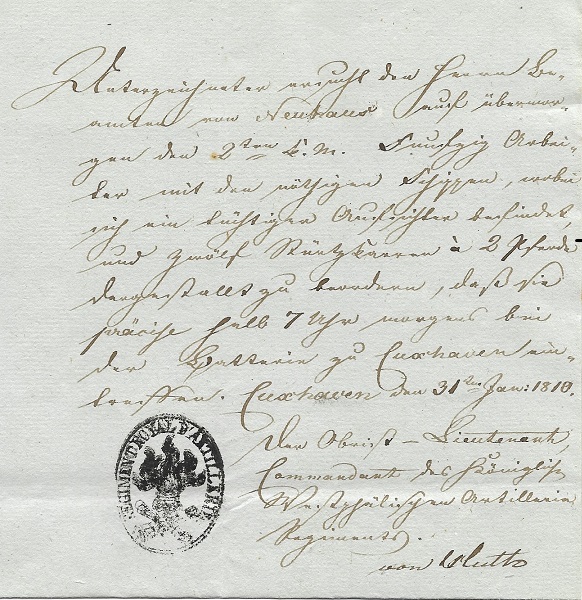 Unterzeichneter ersucht den Herrn Be-
amten von Neuhaus auf übermor-
gen den 2ten k. M. Funfzig Arbei-
ter mit den nöthigen Schippen, wobei
sich ein tüchtiger Aufsichter befindet,
und zwölf Sturtzkarren à 2 Pferde
dergestallt zu beordern, daß sie
präcise halb 7 Uhr morgens bei
der Batterie zu Cuxhaven ein-
treffen. Cuxhaven den 31ten Jan: 1810.
Der Obrist-Lieutenant,
Commandant des Königlich
Westphälischen Artillerie
Regiments.
von
REGIMENT ROYAL D'ARTILLERIE